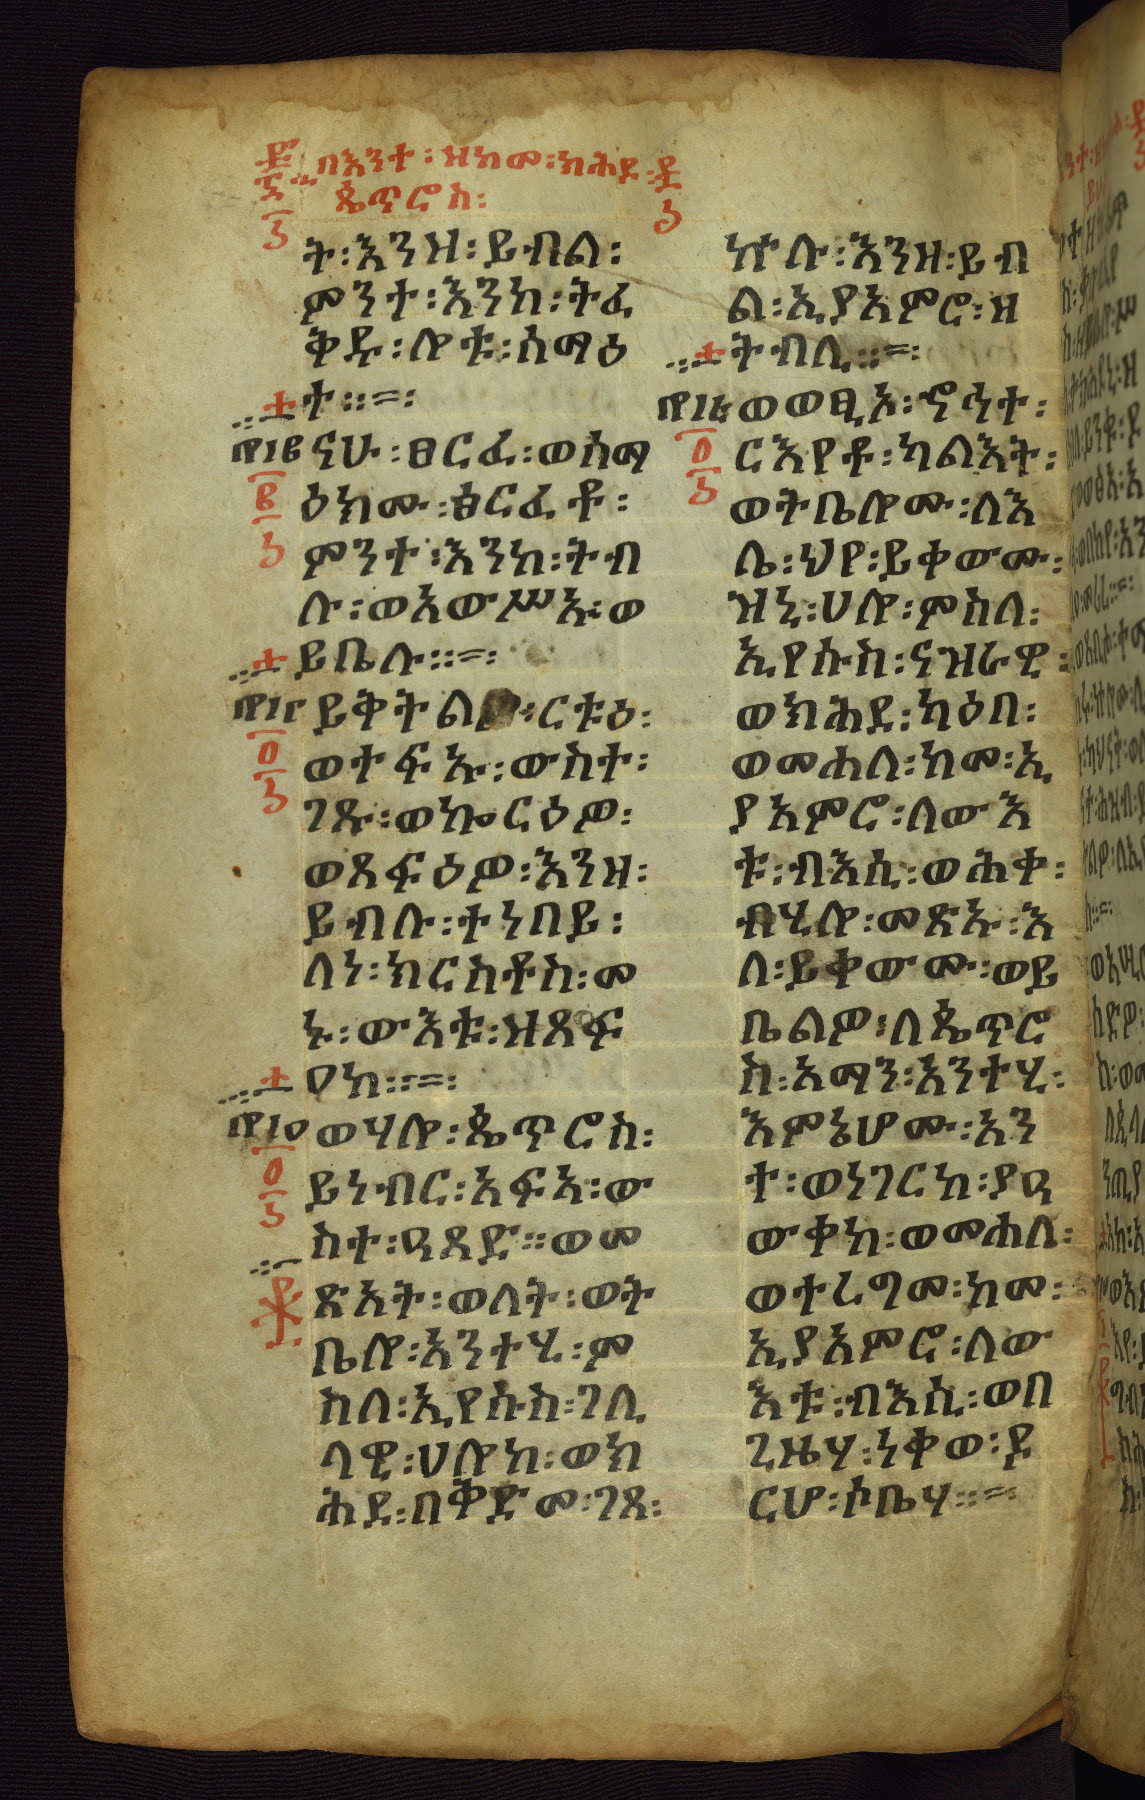 በእንተ፡ዝከመ፡ክሕደ፡
ጴጥሮስ፡
ት፡እንዝ፡ይብል፡
ምንተ፡እንከ፡ትፈ
ቅዱ፡ሎቱ፡ስማዕ
ተ፡፡=፡
ናሁ፡ፀርፈ፡ወሰማ
ዕክሙ፡ፅርፈቶ፡
ምንተ፡እንከ፡ትብ
ሉ፡ወአውሥኡ፡ወ
ይቤሉ፡፡=፡
ይቅትልዎ፡ርቱዕ፡
ወተፍኡ፡ውስተ፡
ገጹ፡ወኰርዕዎ፡
ወጸፍዕዎ፡እንዘ፡
ይብሉ፡ተነበይ፡
ለነ፡ክርስቶስ፡መ
ኑ፡ውእቱ፡ዝጸፍ
ዐከ፡፡=፡
ወሃሎ፡ጴጥሮስ፡
ይነብር፡አፍአ፡ው
ስተ፡ዓጸድ፡፡ወመ
ጽአት፡ወለት፡ወት
ቤሎ፡አንተሂ፡ም
ስለ፡ኢየሱስ፡ገሊ
ላዊ፡ሀሎከ፡ወክ
ሕደ፡በቅድመ፡ገጸ፡
ኵሉ፡እንዘ፡ይብ
ል፡ኢያአምሮ፡ዘ
ትብሊ፡፡=፡
ወወፂኦ፡ኆኅተ፡
ርእየቶ፡ካልእት፡
ወትቤሎሙ፡ለእ
ለ፡ህየ፡ይቀውሙ፡
ዝኒ፡ሀሎ፡ምስለ፡
ኢየሱስ፡ናዝራዊ፡
ወክሕደ፡ካዕበ፡
ወመሐለ፡ከመ፡ኢ
ያአምሮ፡ለውእ
ቱ፡ብእሲ፡ወሕቀ፡
ብሂሎ፡መጽኡ፡እ
ለ፡ይቀውሙ፡ወይ
ቤልዎ፡ለጴጥሮ
ስ፡አማን፡አንተሂ፡
እምኔሆሙ፡አን
ተ፡ወነገርከ፡ያዓ
ውቀከ፡ወመሐለ፡
ወተረግመ፡ከመ፡
ኢያአምሮ፡ለው
እቱ፡ብእሲ፡ወበ
ጊዜሃ፡ነቀወ፡ዶ
ርሆ፡ሶቤሃ፡፡=፡